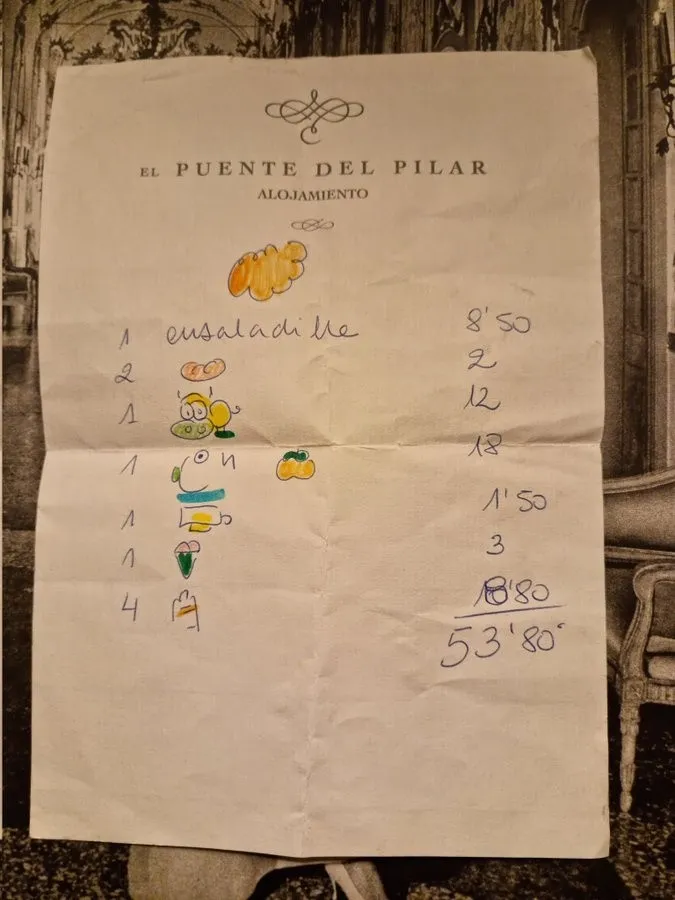 EL PUENTE DEL PILAR
ALOJAMIENTO
1 ensaladilla 8'50
2 2
1 12
1 18
1 1'50
1 3
4 8'80
53'80